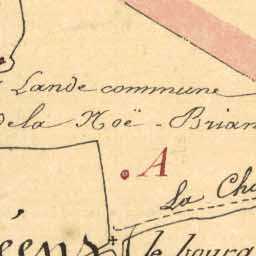 Lande commune
de la Noë - Brian
A
La Cha
éens
le bourg